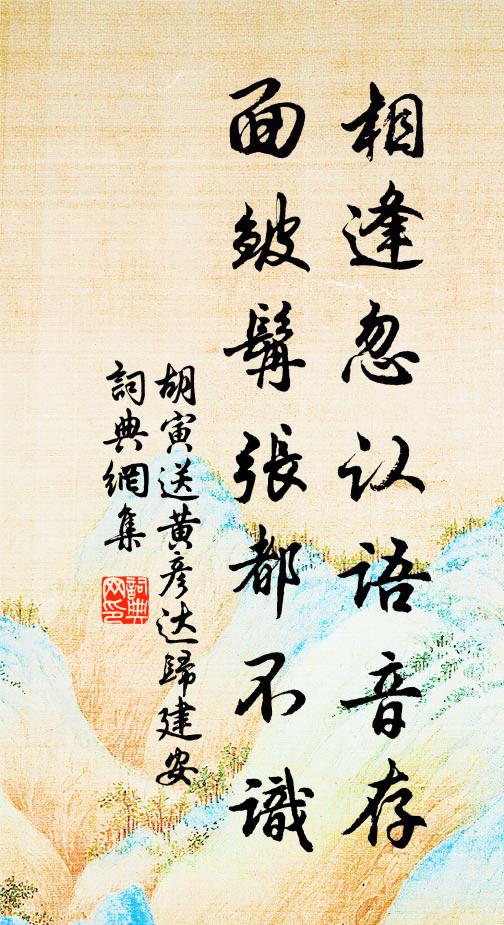 相逢忽认语音存
面皴髯張都不識
胡寅送黄彦达歸建安
詞典網集
詞典
网印